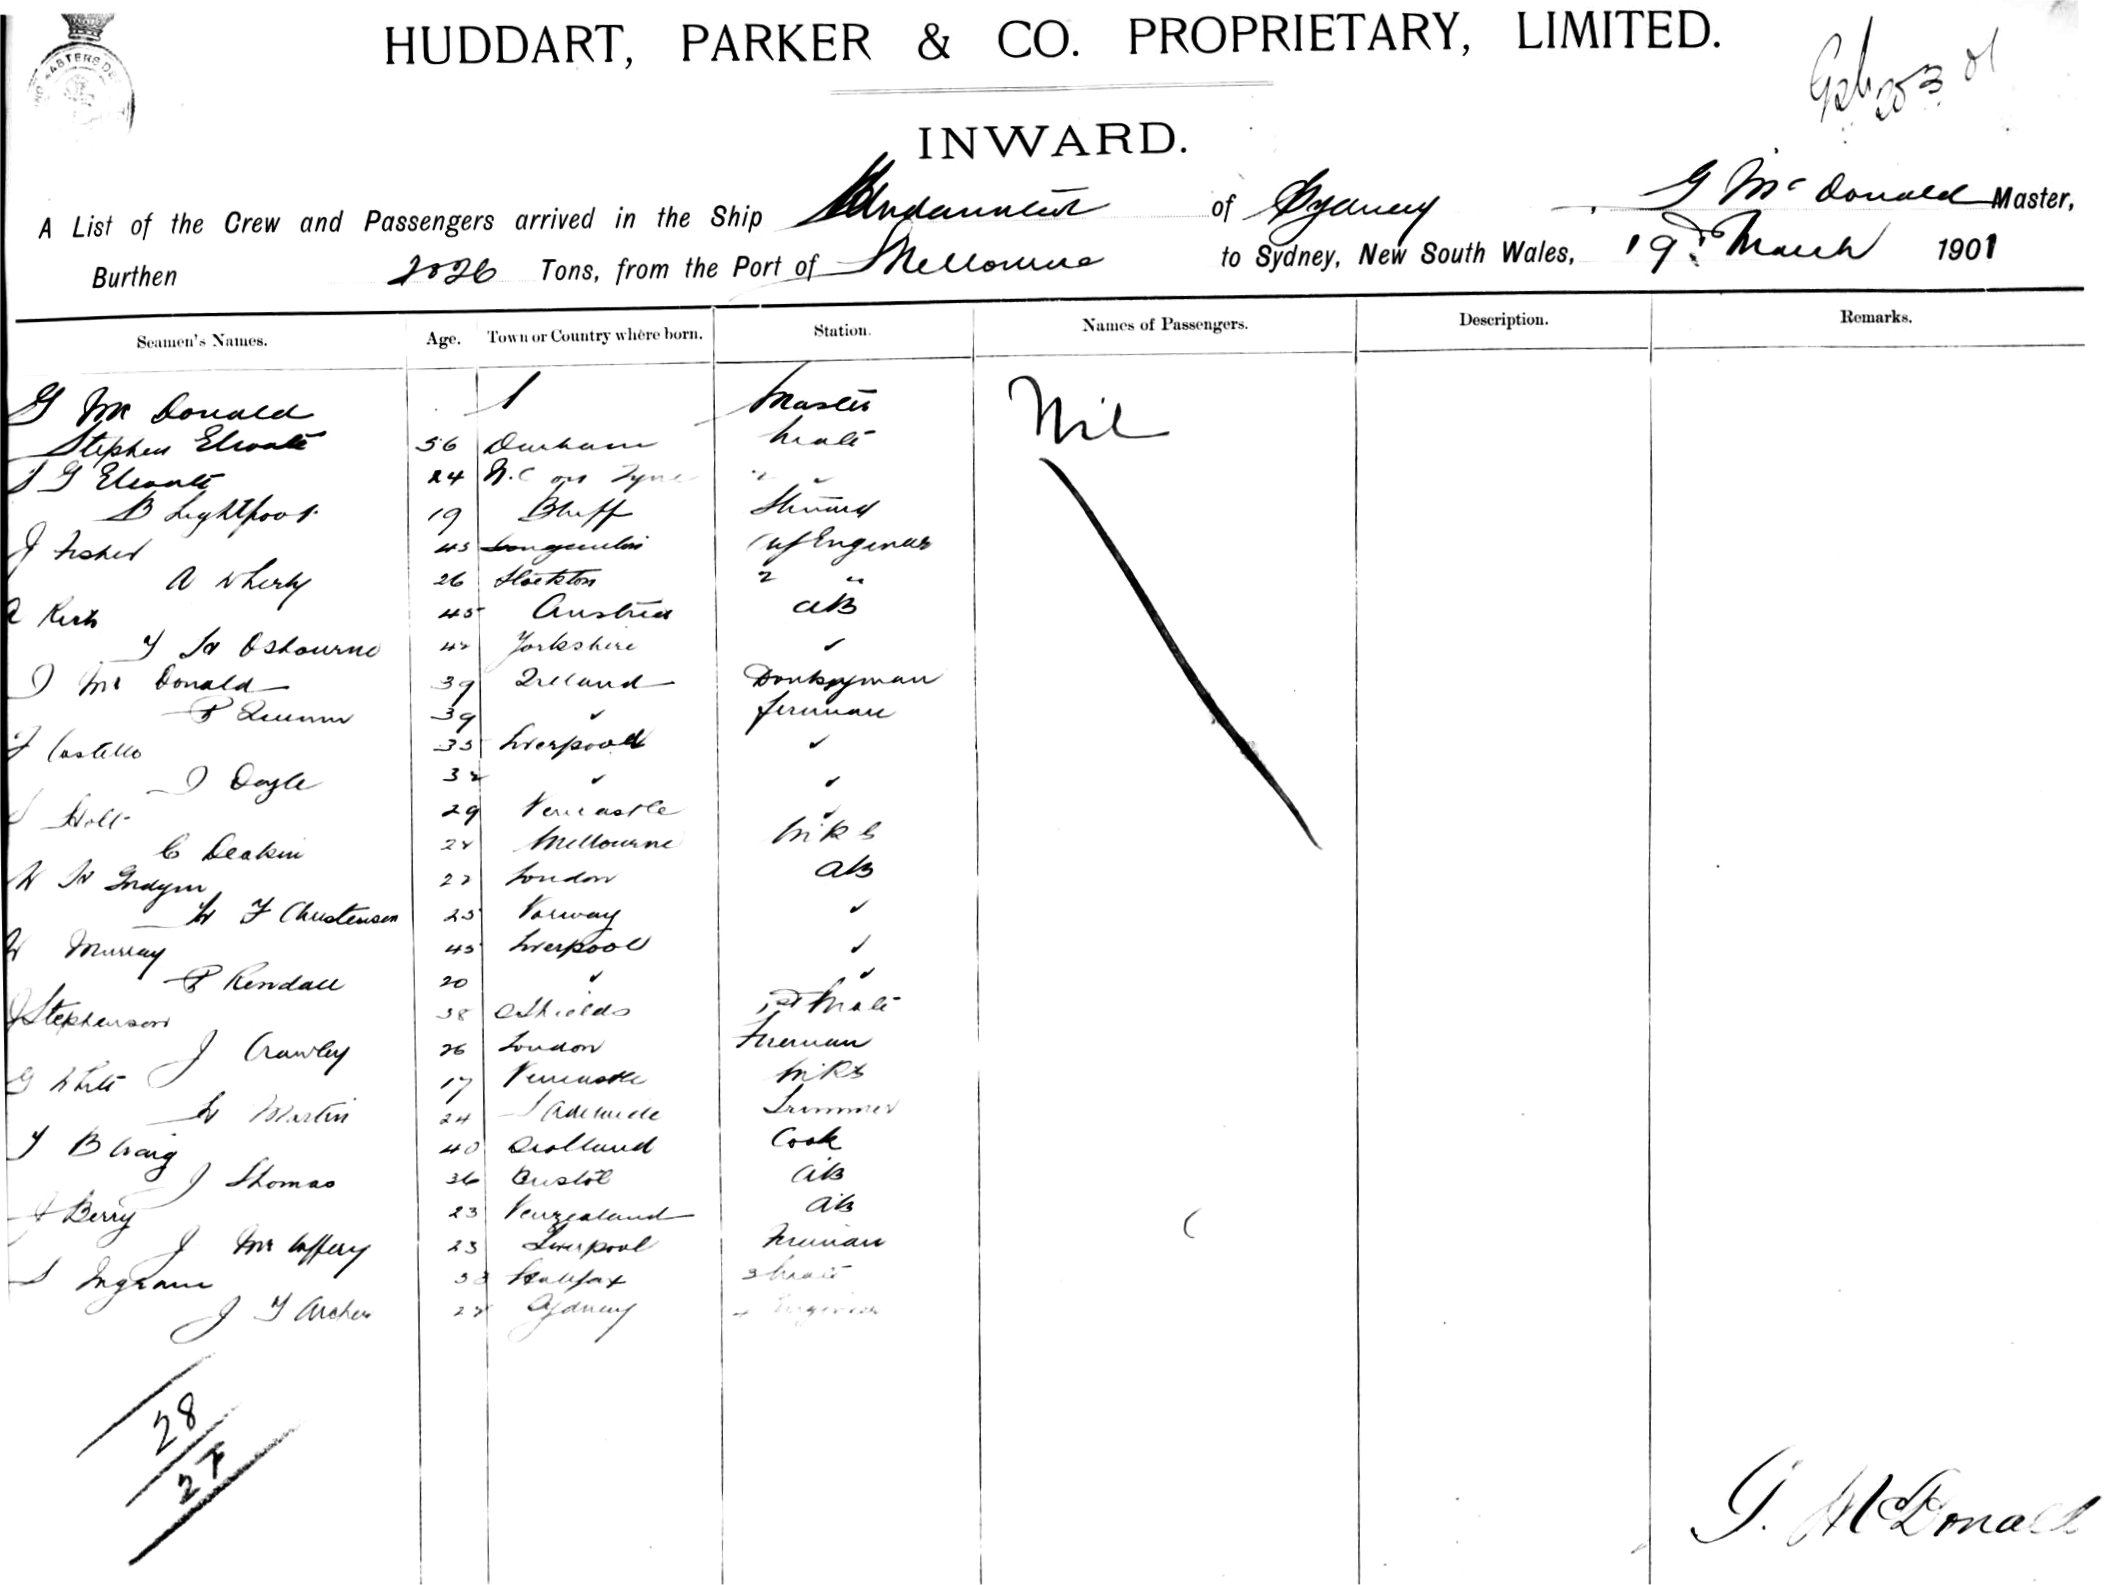 HUDDART, PARKER & CO. PROPRIETARY, LIMITED.
INWARD.
A List of the Crew and Passengers arrived in the Ship of Sydney G McDonald Master,
Burthen 2026 Tons, from the Port of Melbourne to Sydney, New South Wales, 19th March 1901
Seamen's Names. Age. Town or Country where born. Station. Names of Passengers. Description. Remarks.
G Mc Donald Master Nil
Stephen 56 Durham Mate
S G 24 N.C on Tyne "
B Lightfoot 19 Bluff Steward
J Fisher 45 Engineer
A Wherly 26 Stockton 2 "
A Kirk 45 Austria AB
T W Osbourne 42 Yorkshire ✓
J Mc Donald 39 Ireland Donkeyman
P Quinn 39 ✓ fireman
J Costello 35 Liverpool ✓
J Doyle 32 ✓ ✓
S Holt 29 Newcastle ✓
C Deakin Melbourne
W W London AB
W F Christensen 25 Norway ✓
W Murray 45 Liverpool ✓
P Kendall 20 ✓ ✓
J Stephenson 38 S Shields 1st Mate
J Crawley 26 London Fireman
G White 17 Newcastle
W Martin 24 Adelaide Trimmer
T B Craig 40 Scotland Cook
J Thomas 36 Bristol AB
J Berry 23 Newzealand AB
J Mc Caffery 23 Liverpool Fireman
S Ingram 33 Halifax 3 Mate
J T Archer Sydney Engineer
28
27
G. McDonald